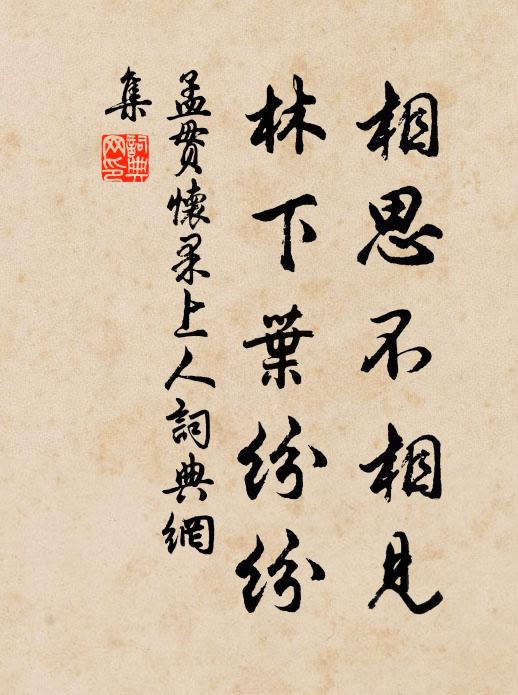 相思不相見
林下葉紛紛
孟貫懷果上人詞典網
集
詞典
网印